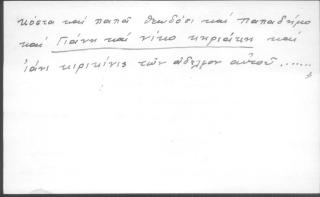 κόστα καί παπᾶ θεωδόσι καί παπαδῆμο
καί Γιάνη καί νίκο κηριάκη καί
ἰάνι κιρικίνις τῶν ἀδελφον αὐτοῦ .......